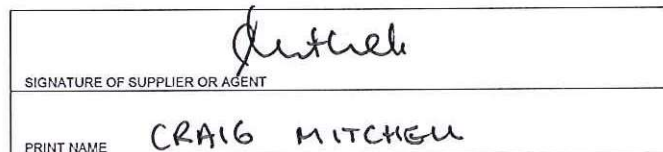 SIGNATURE OF SUPPLIER OR AGENT
PRINT NAME CRAIG MITCHELL